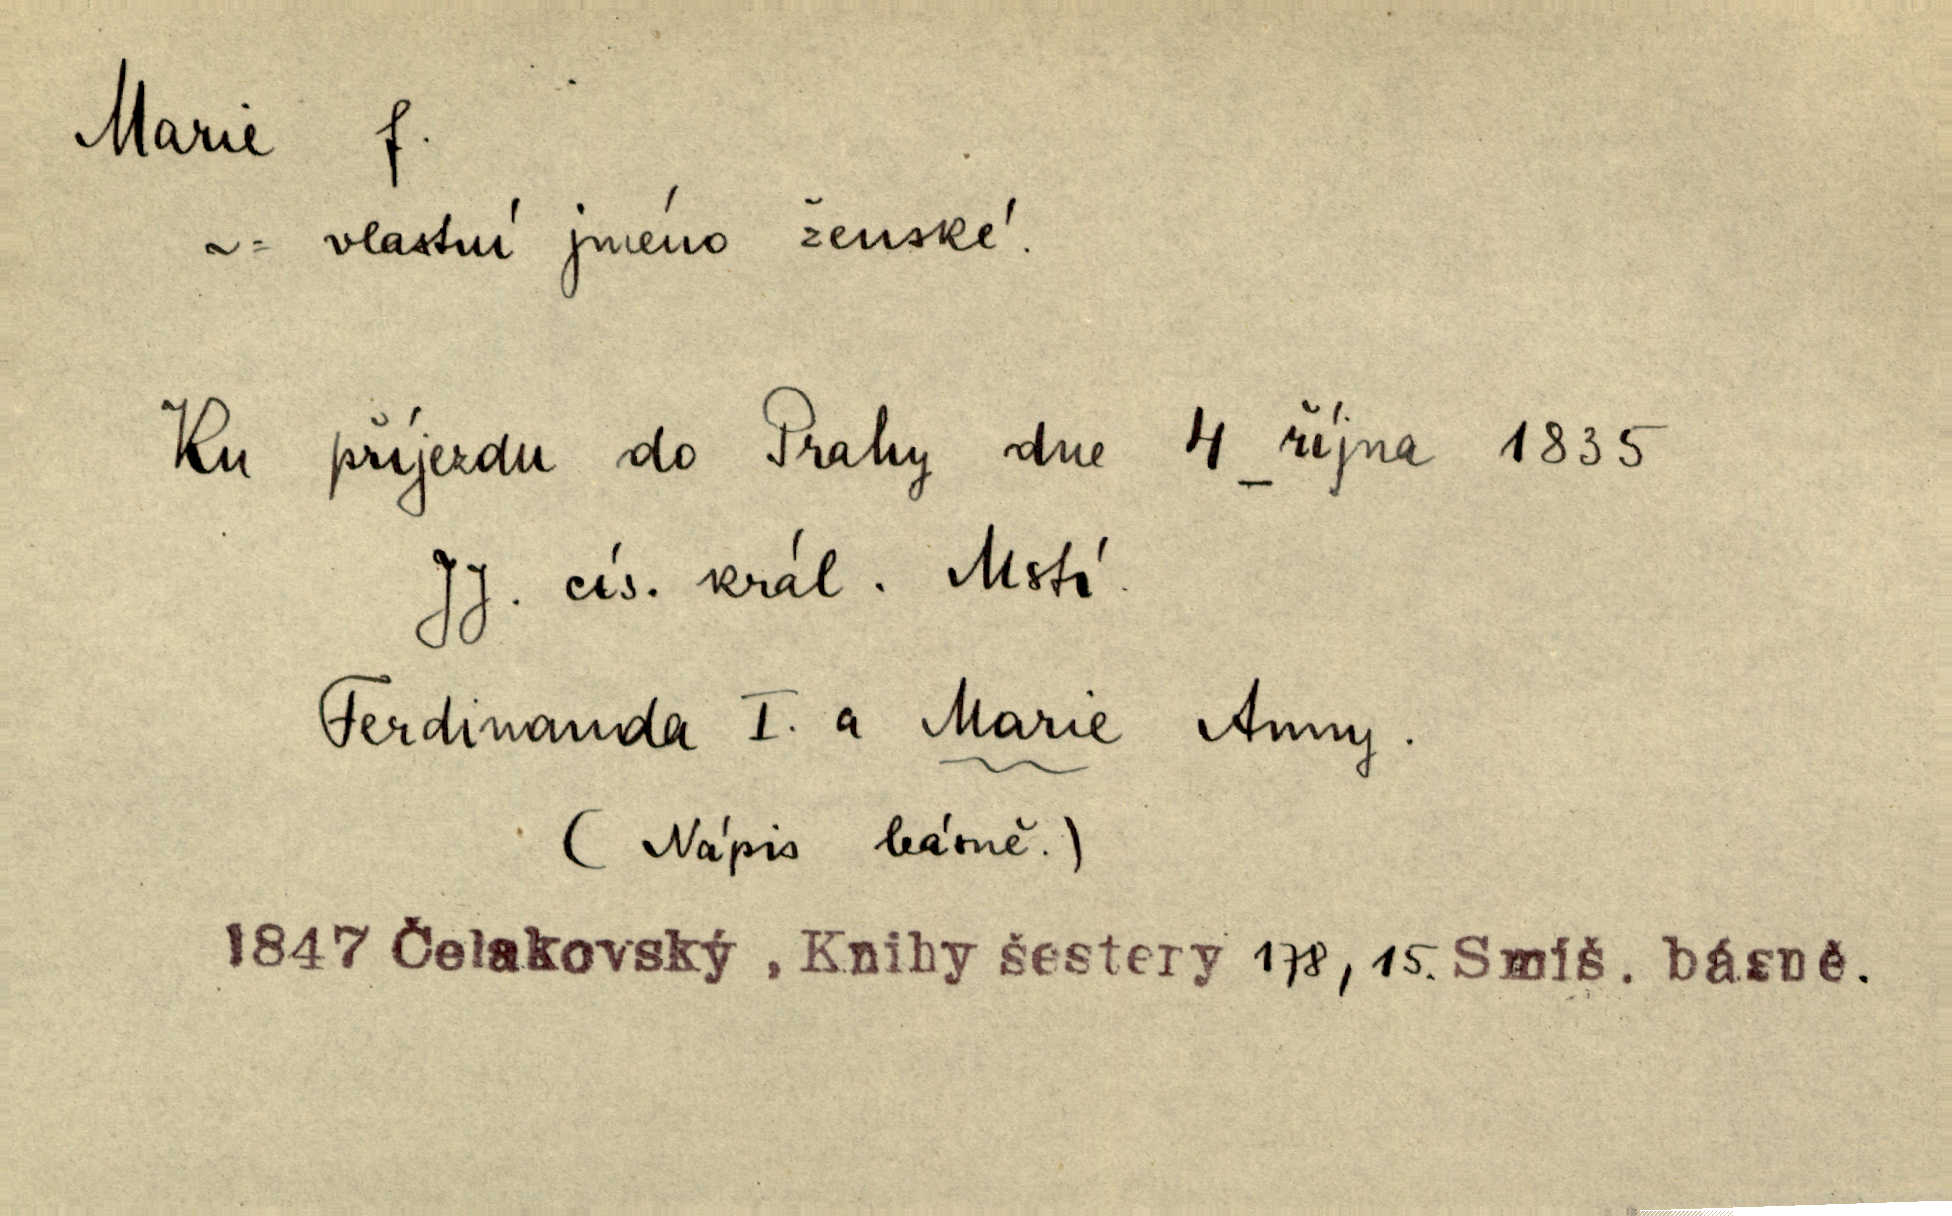 Marie f.
~= vlastní jméno ženské.
Ku příjezdu do Prahy dne 4_října 1835
JJ. cís. král. Mstí.
Ferdinanda I. a Marie Anny.
(Nápis básně.)
1847 Čelakovský, Knihy šestery 178, 15. Smíš. básně.